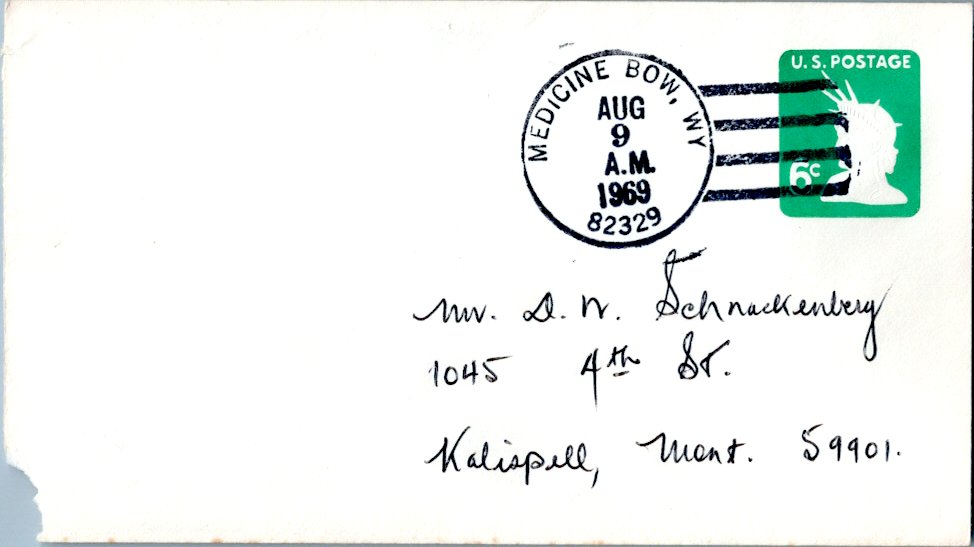 MEDICINE BOW, WY
AUG
9
A.M.
1969
82329
U.S. POSTAGE
6c
Mr. D. W. Schnackenberg
1045 4th St.
Kalispell, Mont. 59901.